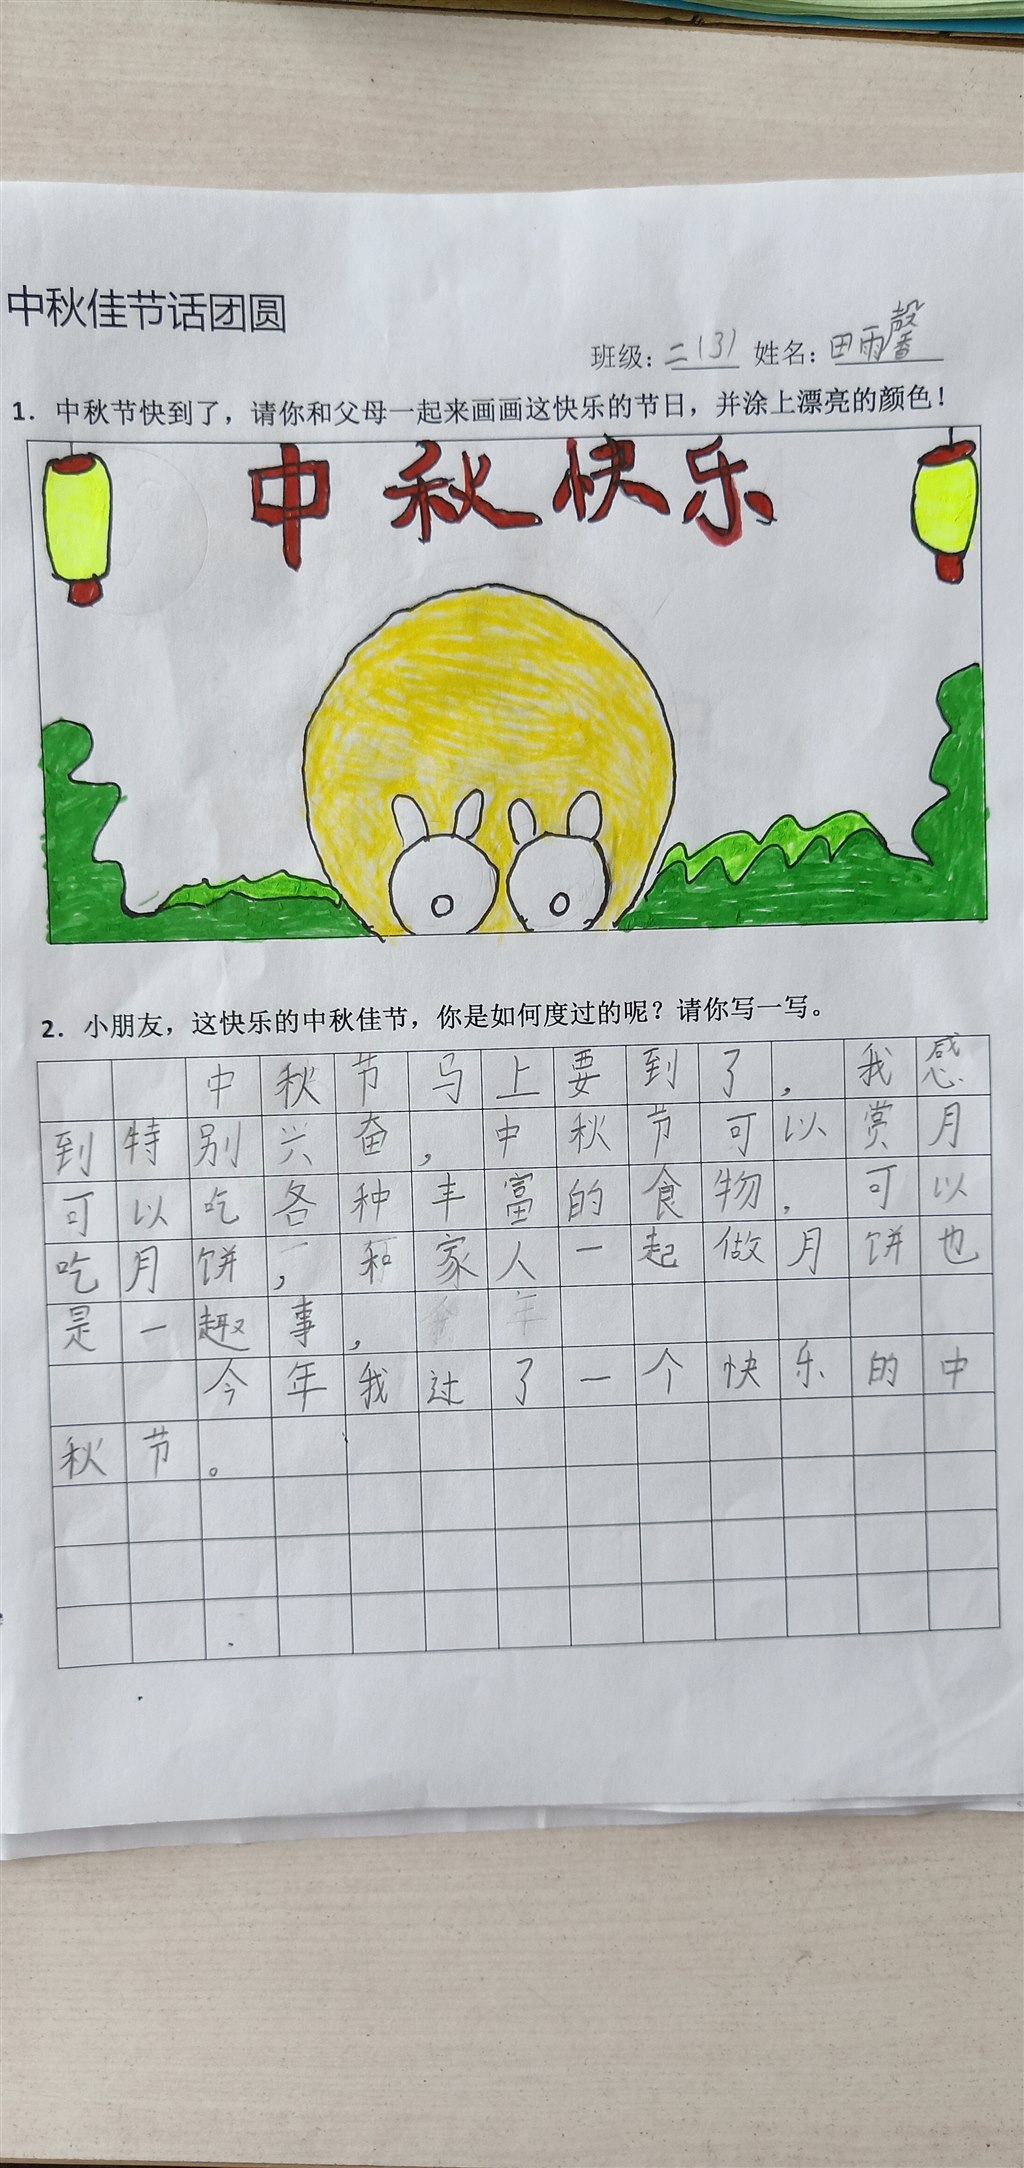 中秋佳节话团圆
班级：二（3） 姓名：田雨馨
1. 中秋节快到了，请你和父母一起来画画这快乐的节日，并涂上漂亮的颜色！
中秋快乐
2. 小朋友，这快乐的中秋佳节，你是如何度过的呢？请你写一写。
中秋节马上要到了，我感
到特别兴奋，中秋节可以赏月
可以吃各种丰富的食物，可以
吃月饼，和家人一起做月饼也
是一趣事，
今年我过了一个快乐的中
秋节。